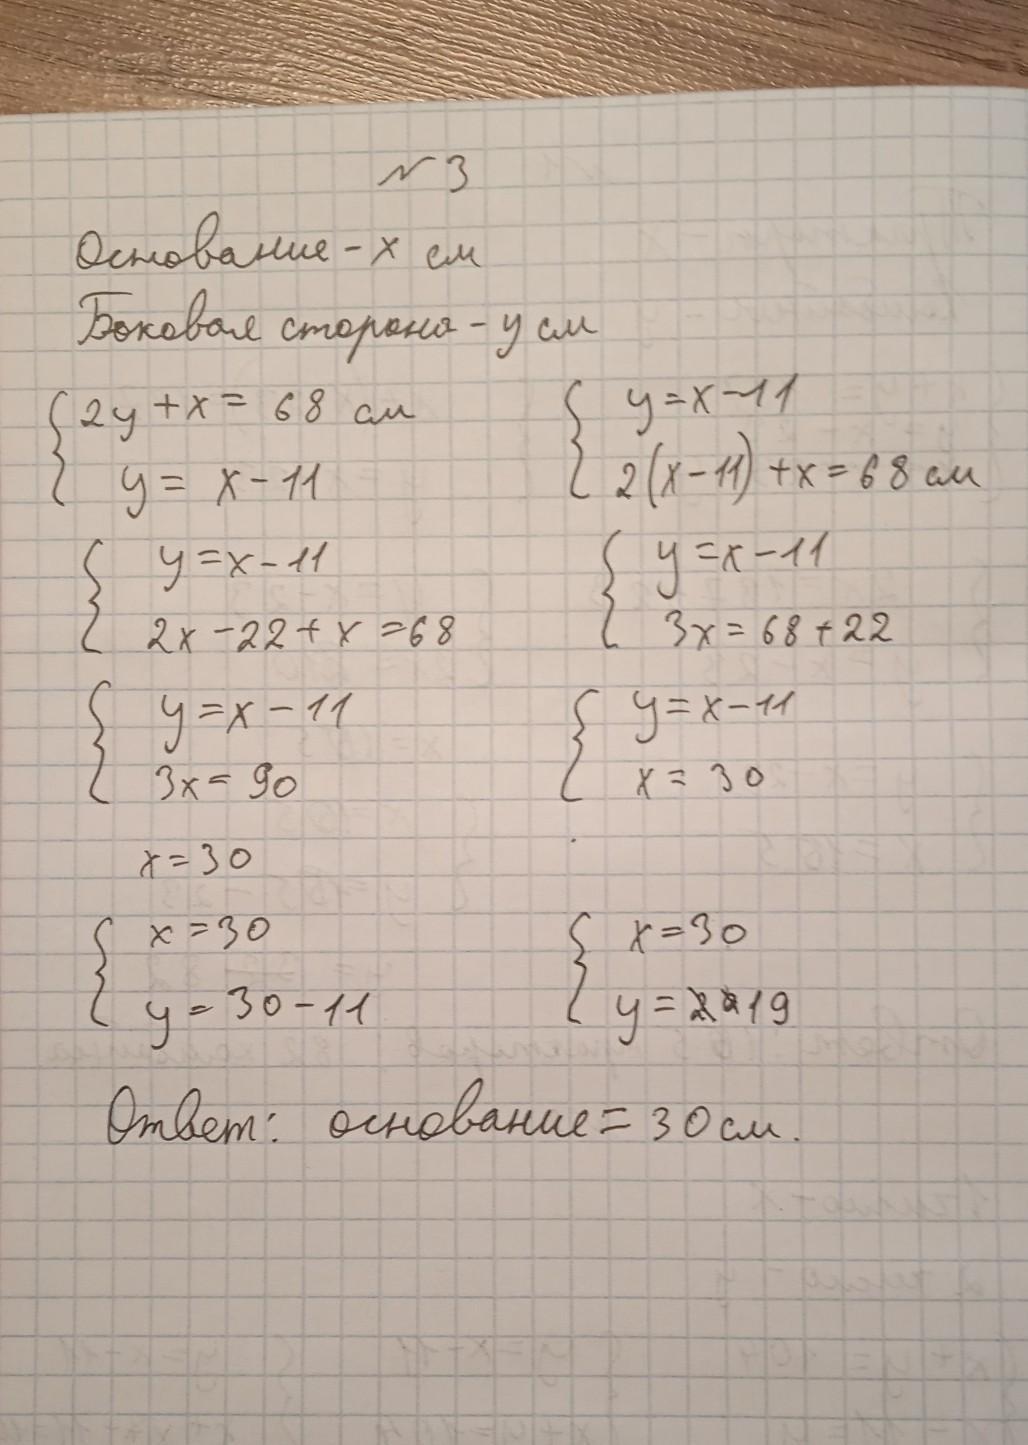 № 3
Основание - x см
Боковая сторона - y см
2y + x = 68 см
y = x - 11
y = x - 11
2(x - 11) + x = 68 см
y = x - 11
2x - 22 + x = 68
y = x - 11
3x = 68 + 22
y = x - 11
3x = 90
y = x - 11
x = 30
x = 30
x = 30
y = 30 - 11
x = 30
y = 19
Ответ: основание = 30 см.